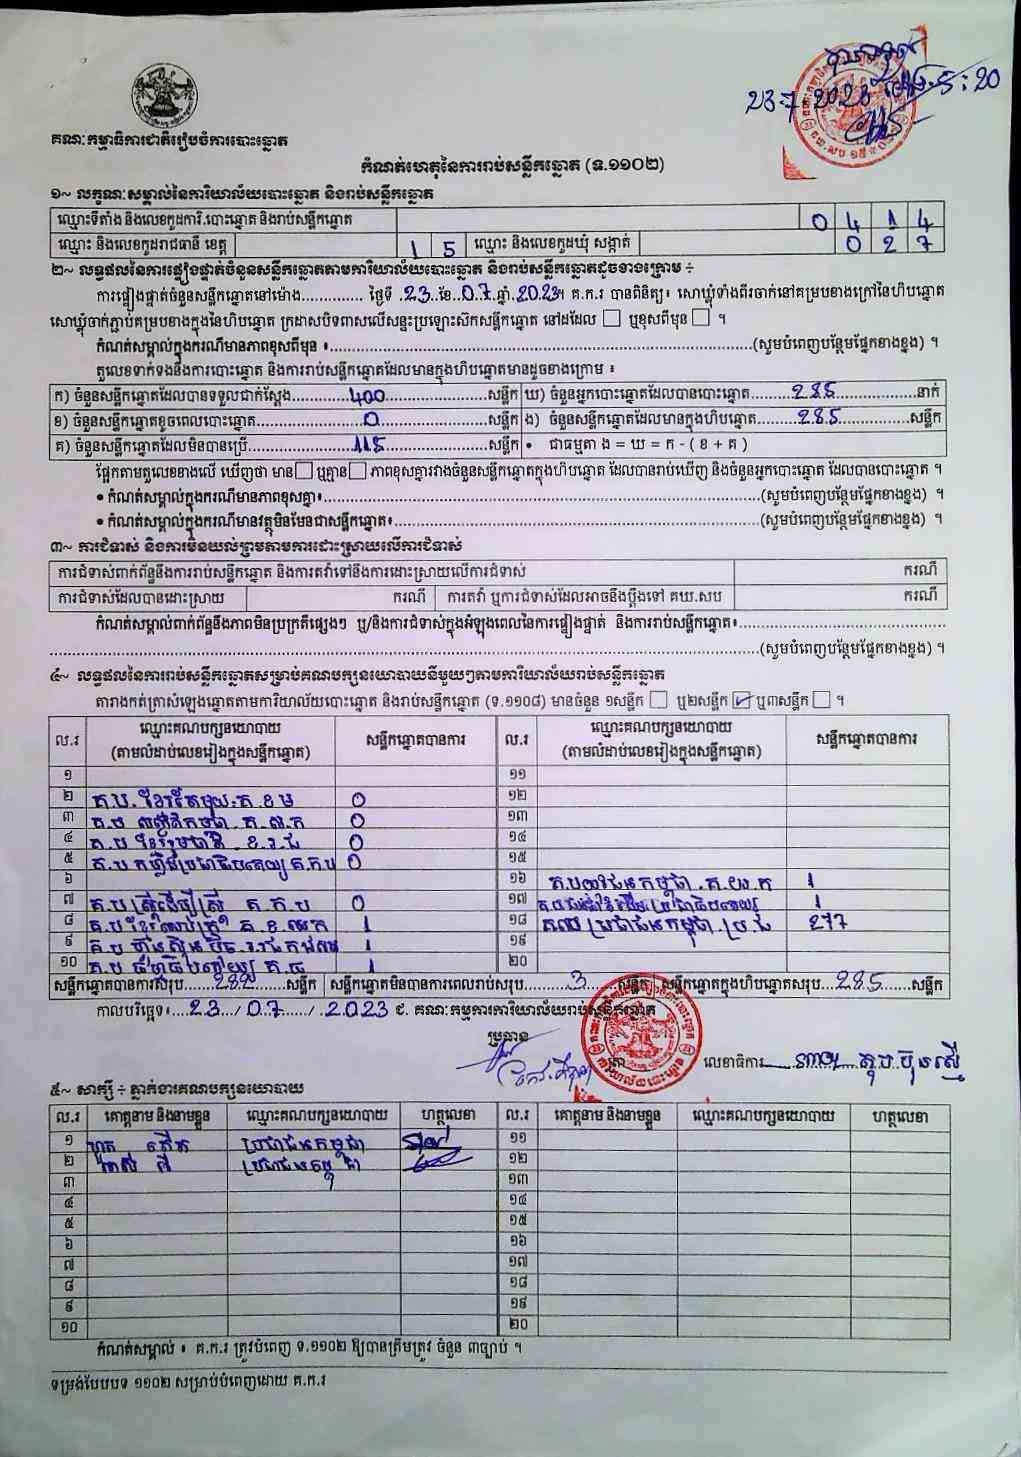 គណៈកម្មាធិការជាតិរៀបចំការបោះឆ្នោត
23.7.2023 5:20
កំណត់ហេតុនៃការរាប់សន្លឹកឆ្នោត (ទ.១១០២)
១~ លក្ខណៈសម្គាល់នៃការិយាល័យបោះឆ្នោត និងរាប់សន្លឹកឆ្នោត
ឈ្មោះទីតាំង និងលេខកូដការិ.បោះឆ្នោត និងរាប់សន្លឹកឆ្នោត 0 4 1 4
ឈ្មោះ និងលេខកូដរាជធានី ខេត្ត 1 5 ឈ្មោះ និងលេខកូដឃុំ សង្កាត់ 0 2 7
២~ លទ្ធផលនៃការផ្ទៀងផ្ទាត់ចំនួនសន្លឹកឆ្នោតតាមការិយាល័យបោះឆ្នោត និងរាប់សន្លឹកឆ្នោតដូចខាងក្រោម ÷
ការផ្ទៀងផ្ទាត់ចំនួនសន្លឹកឆ្នោតនៅម៉ោង............. ថ្ងៃទី .23. ខែ..0.7..ឆ្នាំ.2023។ គ.ក.រ បានពិនិត្យ៖ សោឃ្លុំទាំងពីរចាក់នៅគម្របខាងក្រៅនៃហិបឆ្នោត
សោឃ្លុំចាក់ភ្ជាប់គម្របខាងក្នុងនៃហិបឆ្នោត ក្រដាសបិទពាសលើសន្ទះប្រឡោះស៊កសន្លឹកឆ្នោត នៅដដែល ☐ ឬខុសពីមុន ☐ ។
កំណត់សម្គាល់ក្នុងករណីមានភាពខុសពីមុន ៖..........(សូមបំពេញបន្ថែមផ្នែកខាងខ្នង) ។
តួលេខទាក់ទងនឹងការបោះឆ្នោត និងការរាប់សន្លឹកឆ្នោតដែលមានក្នុងហិបឆ្នោតមានដូចខាងក្រោម ៖
ក) ចំនួនសន្លឹកឆ្នោតដែលបានទទួលជាក់ស្តែង..........400..........សន្លឹក ឃ) ចំនួនអ្នកបោះឆ្នោតដែលបានបោះឆ្នោត..........285..........នាក់
ខ) ចំនួនសន្លឹកឆ្នោតខូចពេលបោះឆ្នោត..........0..........សន្លឹក ង) ចំនួនសន្លឹកឆ្នោតដែលមានក្នុងហិបឆ្នោត..........285..........សន្លឹក
គ) ចំនួនសន្លឹកឆ្នោតដែលមិនបានប្រើ..........115..........សន្លឹក • ជាធម្មតា ង = ឃ = ក - ( ខ + គ )
ផ្អែកតាមតួលេខខាងលើ ឃើញថា មាន ☐ ឬគ្មាន ☐ ភាពខុសគ្នារវាងចំនួនសន្លឹកឆ្នោតក្នុងហិបឆ្នោត ដែលបានរាប់ឃើញ និងចំនួនអ្នកបោះឆ្នោត ដែលបានបោះឆ្នោត ។
• កំណត់សម្គាល់ក្នុងករណីមានភាពខុសគ្នា៖..........(សូមបំពេញបន្ថែមផ្នែកខាងខ្នង) ។
• កំណត់សម្គាល់ក្នុងករណីមានវត្ថុមិនមែនជាសន្លឹកឆ្នោត៖..........(សូមបំពេញបន្ថែមផ្នែកខាងខ្នង) ។
៣~ ការជំទាស់ និងការមិនយល់ព្រមតាមការដោះស្រាយលើការជំទាស់
ការជំទាស់ពាក់ព័ន្ធនឹងការរាប់សន្លឹកឆ្នោត និងការតវ៉ាទៅនឹងការដោះស្រាយលើការជំទាស់ ករណី
ការជំទាស់ដែលបានដោះស្រាយ ករណី ការតវ៉ា ឬការជំទាស់ដែលអាចនឹងប្តឹងទៅ គឃ.សប ករណី
កំណត់សម្គាល់ពាក់ព័ន្ធនឹងភាពមិនប្រក្រតីផ្សេងៗ ឬ/និងការជំទាស់ក្នុងអំឡុងពេលនៃការផ្ទៀងផ្ទាត់ និងការរាប់សន្លឹកឆ្នោត៖..........
..........(សូមបំពេញបន្ថែមផ្នែកខាងខ្នង) ។
៤~ លទ្ធផលនៃការរាប់សន្លឹកឆ្នោតសម្រាប់គណបក្សនយោបាយនីមួយៗតាមការិយាល័យរាប់សន្លឹកឆ្នោត
តារាងកត់ត្រាសំឡេងឆ្នោតតាមការិយាល័យបោះឆ្នោត និងរាប់សន្លឹកឆ្នោត (ទ.១១០៨) មានចំនួន ១សន្លឹក ☐ ឬ២សន្លឹក ☑ ឬ៣សន្លឹក ☐ ។
ល.រ ឈ្មោះគណបក្សនយោបាយ (តាមលំដាប់លេខរៀងក្នុងសន្លឹកឆ្នោត) សន្លឹកឆ្នោតបានការ ល.រ ឈ្មោះគណបក្សនយោបាយ (តាមលំដាប់លេខរៀងក្នុងសន្លឹកឆ្នោត) សន្លឹកឆ្នោតបានការ
១ ១១
២ គ.ប. ខ្មែរតែមួយ.គ.ខ ម 0 ១២
៣ គ.ប 0 ១៣
៤ គ.ប ខ្មែររួបរួមជាតិ 0 ១៤
៥ គ.ប កម្លាំងប្រជាធិបតេយ្យ គ.ក.ប 0 ១៥
៦ ១៦ គ.បយុវជនកម្ពុជា.គ.យ.ក 1
៧ គ.ប ស្ត្រីដើម្បីស្ត្រី 0 ១៧ 1
៨ គ.ប ខ្មែរឈប់ក្រ 1 ១៨ គណបប្រជាជនកម្ពុជា.ប្រ.ជ 277
៩ គ.ប ហ៊្វុនស៊ិនប៉ិច 1 ១៩
១០ គ.ប ធម្មាធិបតេយ្យ គ.ធ 1 ២០
សន្លឹកឆ្នោតបានការសរុប......282......សន្លឹក សន្លឹកឆ្នោតមិនបានការពេលរាប់សរុប......3......សន្លឹក សន្លឹកឆ្នោតក្នុងហិបឆ្នោតសរុប...285......សន្លឹក
កាលបរិច្ឆេទ៖....23.../ 07....../ .2023 ជ. គណៈកម្មការការិយាល័យរាប់សន្លឹកឆ្នោត
ប្រធាន
លេខាធិការ
៥~ សាក្សី ÷ ភ្នាក់ងារគណបក្សនយោបាយ
ល.រ គោត្តនាម និងនាមខ្លួន ឈ្មោះគណបក្សនយោបាយ ហត្ថលេខា ល.រ គោត្តនាម និងនាមខ្លួន ឈ្មោះគណបក្សនយោបាយ ហត្ថលេខា
១ ប្រជាជនកម្ពុជា ១១
២ ប្រជាជនកម្ពុជា ១២
៣ ១៣
៤ ១៤
៥ ១៥
៦ ១៦
៧ ១៧
៨ ១៨
៩ ១៩
១០ ២០
កំណត់សម្គាល់ ៖ គ.ក.រ ត្រូវបំពេញ ទ.១១០២ ឱ្យបានត្រឹមត្រូវ ចំនួន ៣ច្បាប់ ។
ទម្រង់បែបបទ ១១០២ សម្រាប់បំពេញដោយ គ.ក.រ